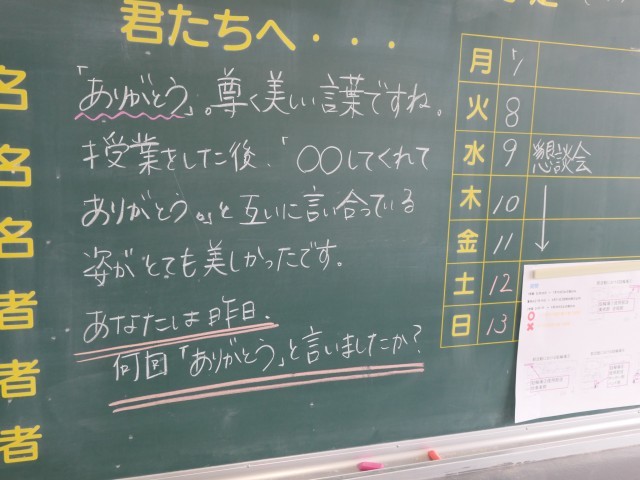 君たちへ・・・
「ありがとう」。尊く美しい言葉ですね。
授業をした後、「○○してくれて
ありがとう。」と互いに言い合っている
姿がとても美しかったです。
あなたは昨日、
何回「ありがとう」と言いましたか？
月 7
火 8
水 9 懇談会
木 10
金 11
土 12
日 13
名
名
名
者
者
者